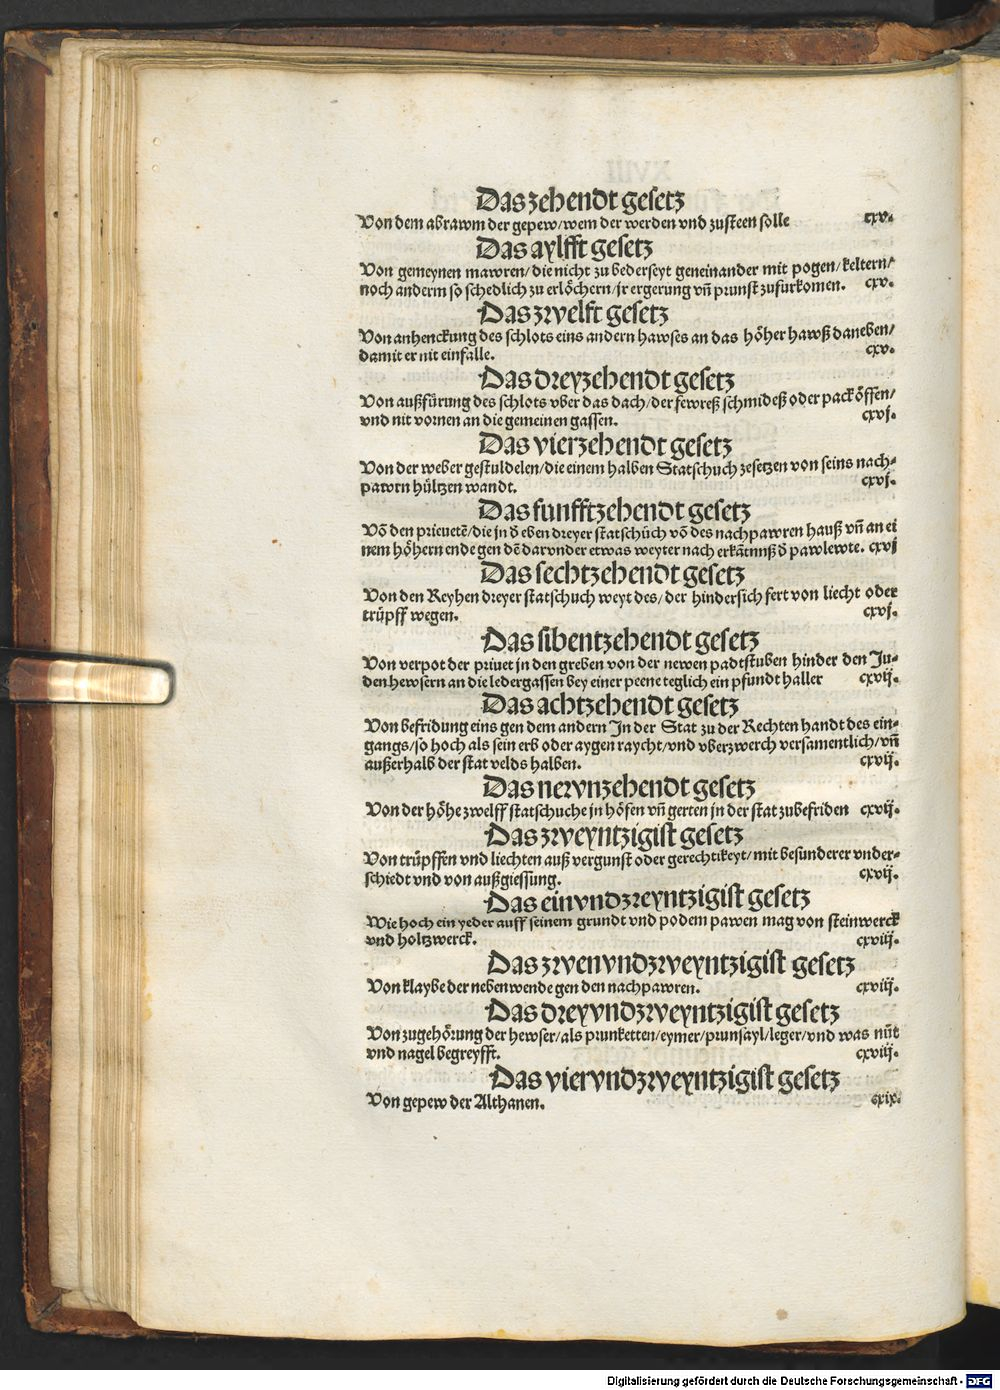 Das zehendt gesetz
Von dem abrawm der gepew/wem der werden vnd zusteen solle cxv.
Das aylfft gesetz
Von gemeynen mawren/die nicht zu bederseyt geneinander mit pogen/keltern/
noch anderm so schedlich zu erlöchern/jr ergerung vñ prunst zufurkomen. cxv.
Das zwelft gesetz
Von anhenckung des schlots eins andern hawses an das höher hawß daneben/
damit er nit einfalle. cxv.
Das dreyzehendt gesetz
Von außfürung des schlots vber das dach/der fewreß schmideß oder pack öffen/
vnd nit vornen an die gemeinen gassen. cxvj.
Das vierzehendt gesetz
Von der weber gestuldelen/die einem halben Statschuch zesetzen von seins nach-
pawrn hültzen wandt. cxvj.
Das funfftzehendt gesetz
Võ den prieuetẽ/die jn d̃ eben dreyer statschüch võ des nachpawren hauß vñ an ei
nem höhern ende gen dẽ darvnder etwas weyter nach erkãtnnß d̃ pawlewte. cxvj
Das sechtzehendt gesetz
Von den Reyhen dreyer statschuch weyt des/der hindersich fert von liecht oder
trüpff wegen. cxvj.
Das sibentzehendt gesetz
Von verpot der priuet jn den greben von der newen padtstuben hinder den Ju-
den hewsern an die ledergassen bey einer peene teglich ein pfundt haller cxvij.
Das achtzehendt gesetz
Von befridung eins gen dem andern Jn der Stat zu der Rechten handt des ein-
gangs/so hoch als sein erb oder aygen raycht/vnd vberzwerch versamentlich/vñ
außerhalb der stat velds halben. cxvij.
Das newnzehendt gesetz
Von der höhe zwelff statschuche jn höfen vñ gerten jn der stat zubefriden cxvij.
Das zweyntzigist gesetz
Von trüpffen vnd liechten auß vergunst oder gerechtikeyt/mit besunderer vnder-
schiedt vnd von außgiessung. cxvij.
Das einvndzweyntzigist gesetz
Wie hoch ein yeder auff seinem grundt vnd podem pawen mag von steinwerck
vnd holtzwerck. cxviij.
Das zwenvndzweyntzigist gesetz
Von klaybe der nebenwende gen den nachpawren. cxviij.
Das dreyvndzweyntzigist gesetz
Von zugehörung der hewser/als prunketten/eymer/prunsayl/leger/vnd was nüt
vnd nagel begreyfft. cxviij.
Das viervndzweyntzigist gesetz
Von gepew der Althanen. cxix.
Digitalisierung gefördert durch die Deutsche Forschungsgemeinschaft - DFG